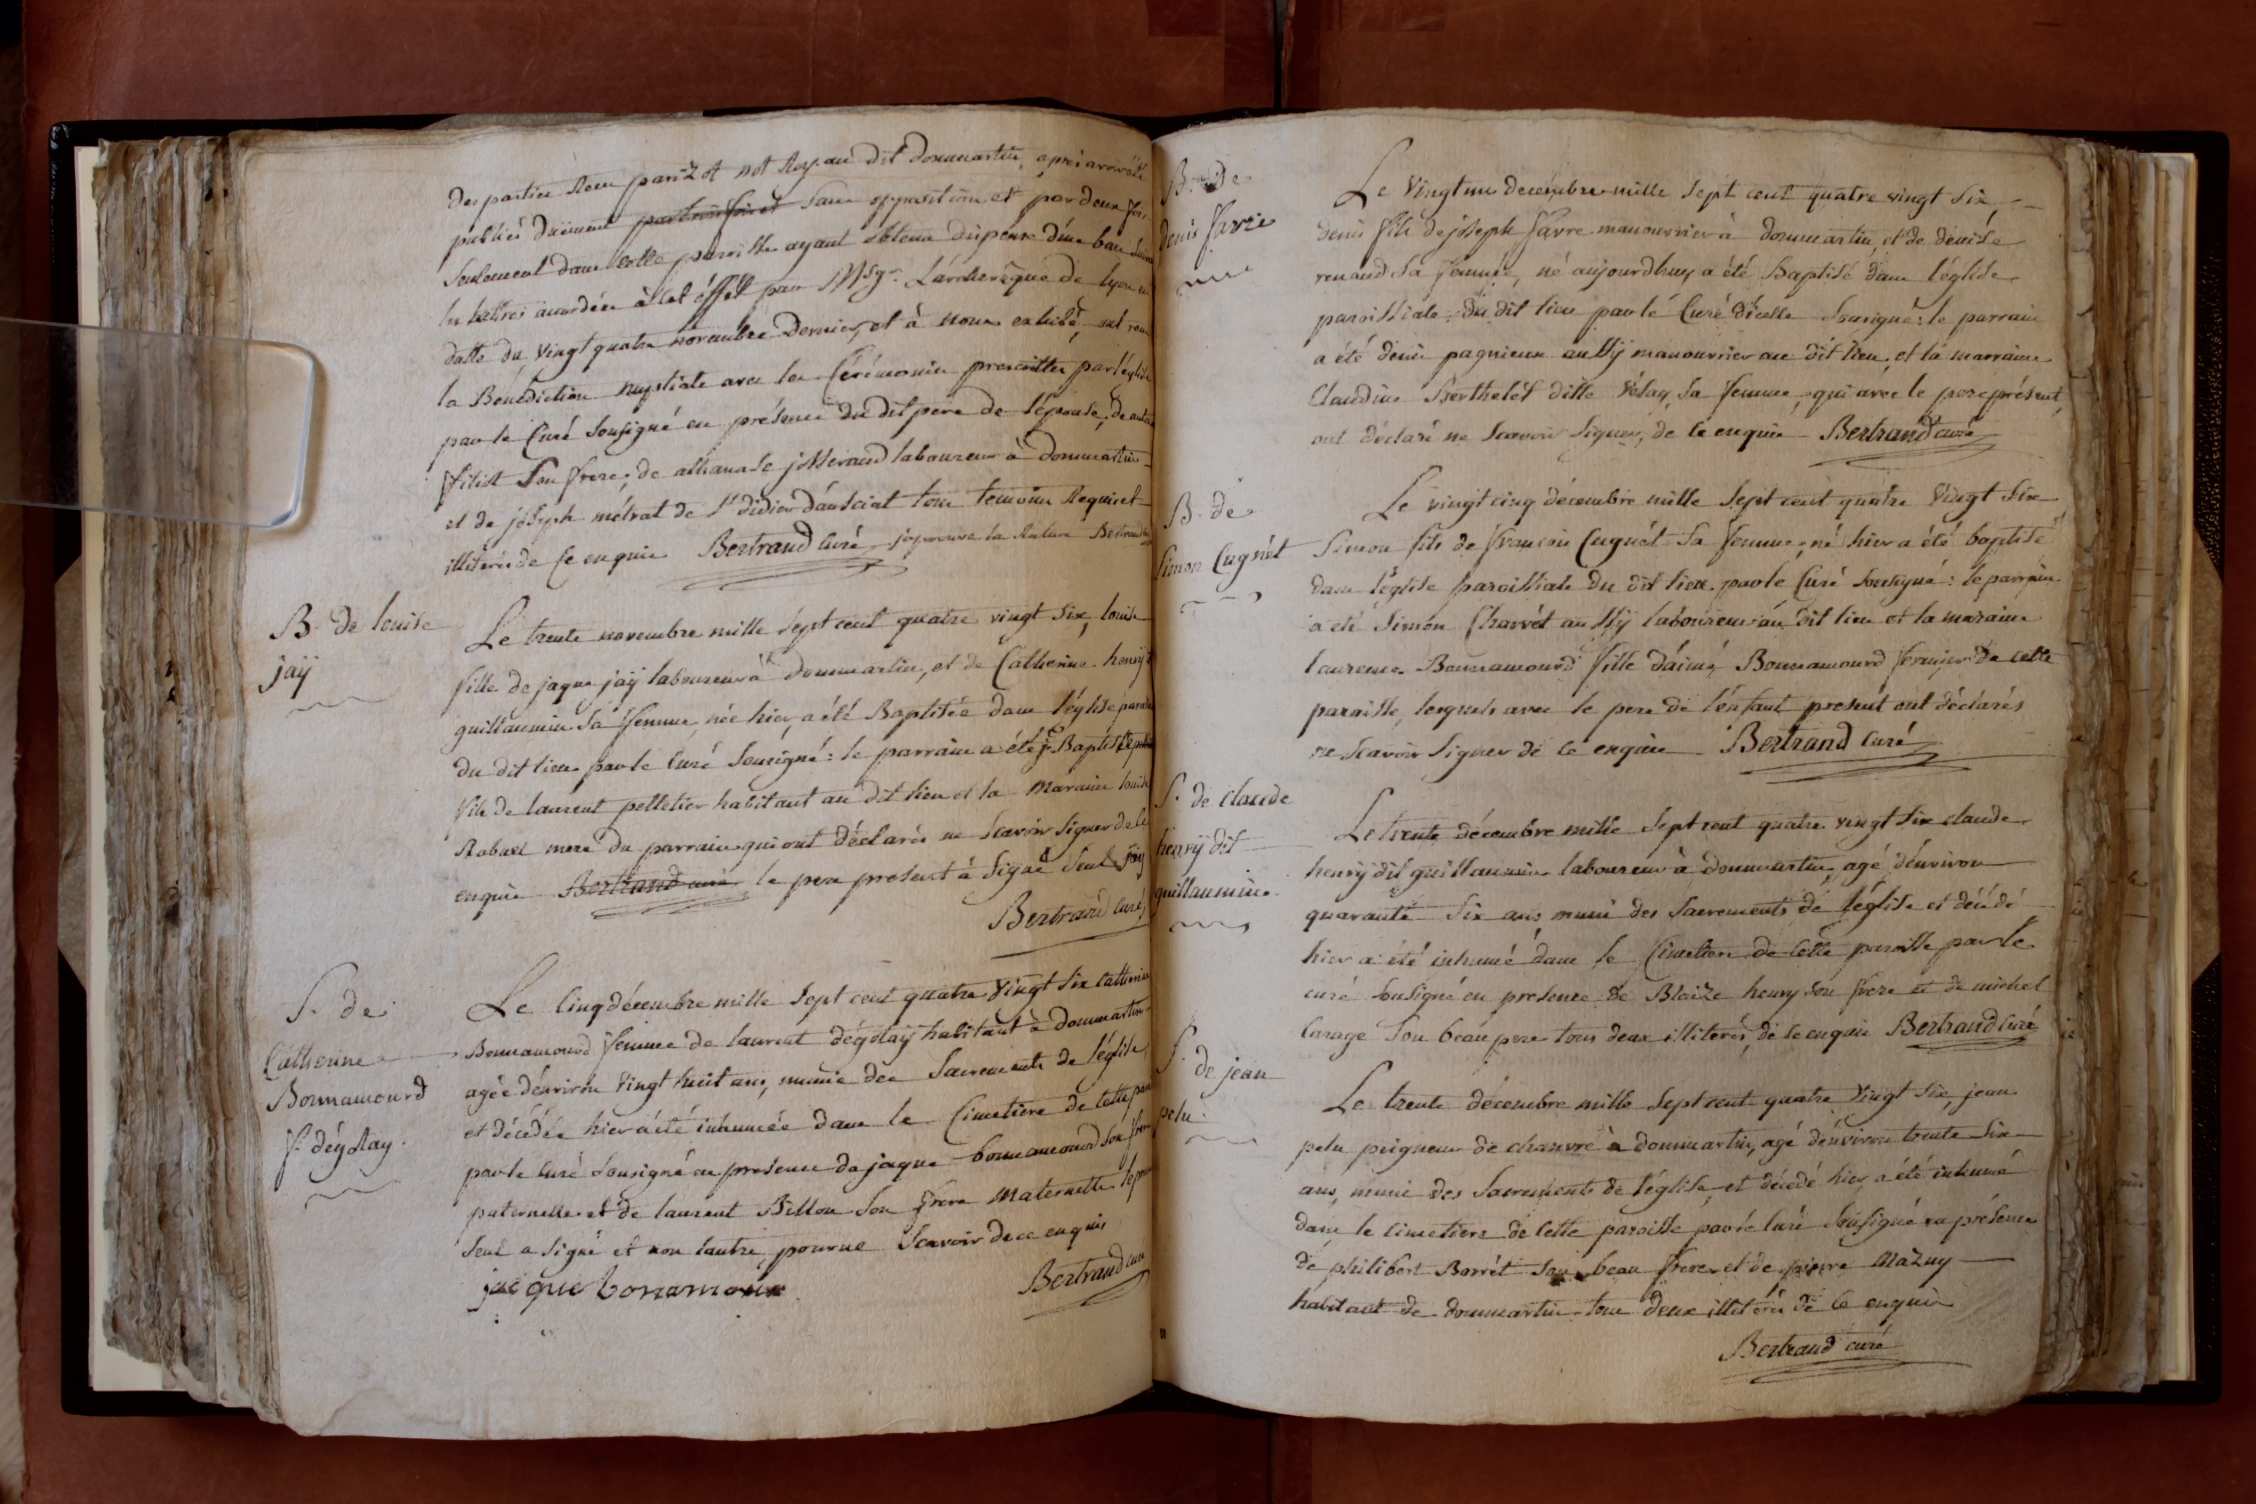 des parties Reçu parizot not Roy. au dit dommartin, apres avoir été
publiés duëment par trois fois et sans opposition et par deux fois
seulement dans cette paroisse ayant obtenu dispense d'une ban
les lettres accordées à cet éffet par Msgr. L'archevêque de lyon en
datte du vingt quatre novembre dernier, et à nous exhibé, ont reçu
la Bénédiction nuptiale avec les Cérémonies prescrittes par l'église
par le Curé sousigné en présence du dit pere de l'épouse, de
son frere, de athanase josserand laboureur à dommartin
et de joseph métrat de St didier d'aussiat tous temoins Requis et
illiterés de ce enquis Bertrand Curé japrouve la Rature Bertrand
B. de louise
jaÿ
Le trente novembre mille sept cent quatre vingt six, louise
fille de jaque jaÿ laboureur à dommartin, et de Catherine henrÿ
guillaumin sa femme, née hier, a été Baptisée dans l'église
du dit lieu par le Curé sousigné : le parrain a été j. Baptiste
fils de laurent pelletier habitant au dit lieu et la Maraine louise
Robuel mere du parrain qui ont déclarés ne scavoir signer de ce
enquis Bertrand curé le pere présent a signé seul jaÿ
Bertrand Curé
S. de
Catherine
Bonnamourd
f. dégolay.
Le cinq décembre mille sept cent quatre vingt six Catherine
Bonnamourd femme de laurent dégolaÿ habitant à dommartin
agée d'environ vingt huit ans, munie des Sacrements de l'église
et décédée hier a été inhumée dans le Cimetière de cette
par le Curé sousigné en presence de jaque bonnamourd son frere
paternelle et de laurent Billon son frere Maternelle
seul a signé et non l'autre pour ne scavoir de ce enquis
jacque bonamour
Bertrand curé
B. de
denis favre
Le vingt un decembre mille sept cent quatre vingt six
denis fils de joseph favre manouvrier à dommartin, et de dénise
renaud sa femme, né aujourdhuy a été Baptisé dans l'église
paroissiale du dit lieu par le Curé d'icelle sousigné : le parrain
a été denis pagnieux aussÿ manouvrier au dit lieu, et la marraine
Claudine Berthelet ditte vélay, sa femme, qui avec le pere présent,
ont déclaré ne scavoir signer, de ce enquis Bertrand curé
B. de
Simon Cugnét
Le vingt cinq décembre mille sept cent quatre vingt six
Simon fils de francois Cugnét sa femme, né hier a été baptisé
dans l'église paroissiale du dit lieu par le Curé sousigné : le parrain
a été Simon Charvét aussÿ laboureur au dit lieu et la maraine
laurence Bonnamourd fille d'aimé Bonnamourd fermier de cette
paroisse, lesquels avec le pere de l'énfant présent ont déclarés
ne scavoir signer de ce enquis Bertrand Curé
S. de claude
henrÿ dit
guillaumin
Le trente décembre mille sept cent quatre vingt six claude
henrÿ dit guillaumin laboureur à dommartin, agé d'environ
quarante six ans, muni des Sacrements de l'église et décédé
hier a été inhumé dans le Cimetiere de cette paroisse par le
curé sousigné en presence de Blaize henry son frere et de michel
Carage son beau pere tous deux illiterés, de ce enquis Bertrand Curé
S. de jean
pelu.
Le trente décembre mille sept cent quatre vingt six, jean
pelu peigneur de chanvre à dommartin, agé d'environ trente six
ans, muni des Sacrements de l'église, et décédé hier, a été inhumé
dans le cimetiere de cette paroisse par le curé sousigné en présence
de philibert Borrét son beau frere et de pierre Mazuy
habitant de dommartin tous deux illiterés de ce enquis
Bertrand curé